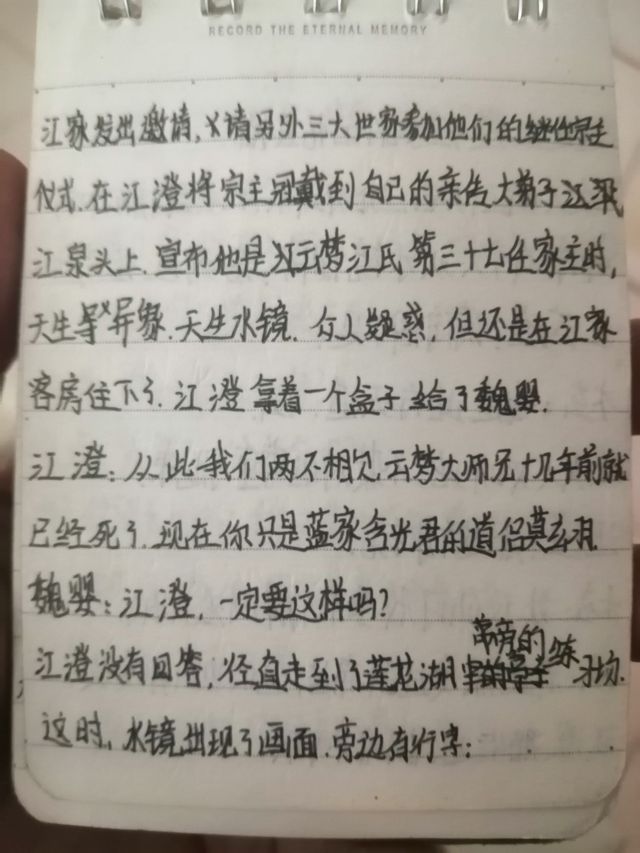 RECORD THE ETERNAL MEMORY
江家发出邀请,请另外三大世家参加他们的继任宗主
仪式.在江澄将宗主冠戴到自己的亲传大弟子江飛
江泉头上.宣布他是云梦江氏第三十七任家主时,
天生异象.天生水镜.众人疑惑,但还是在江家
客房住下了.江澄拿着一个盒子给了魏婴.
江澄:从此我们两不相欠.云梦大师兄十几年前就
已经死了.现在你只是蓝家含光君的道侣莫玄羽
魏婴:江澄,一定要这样吗?
江澄没有回答,径直走到了莲花湖旁的练习场.
这时,水镜出现了画面.旁边有行字: